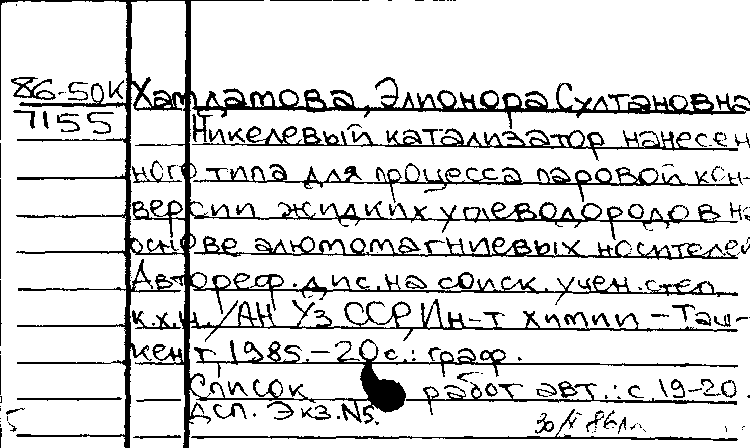 86-50К Хамдамова, Элионора Султановна
7155 Никелевый катализатор нанесен
ного типа для процесса паровой кон-
версии жидких углеводородов на
основе алюмомагниевых носителей
Автореф. дис. на соиск. учен. степ.
к.х.н. /АН Уз ССР, Ин-т химии – Таш-
кент, 1985. – 20 с.: граф.
Список работ авт.: с. 19-20.
ДСП. Экз. N5.